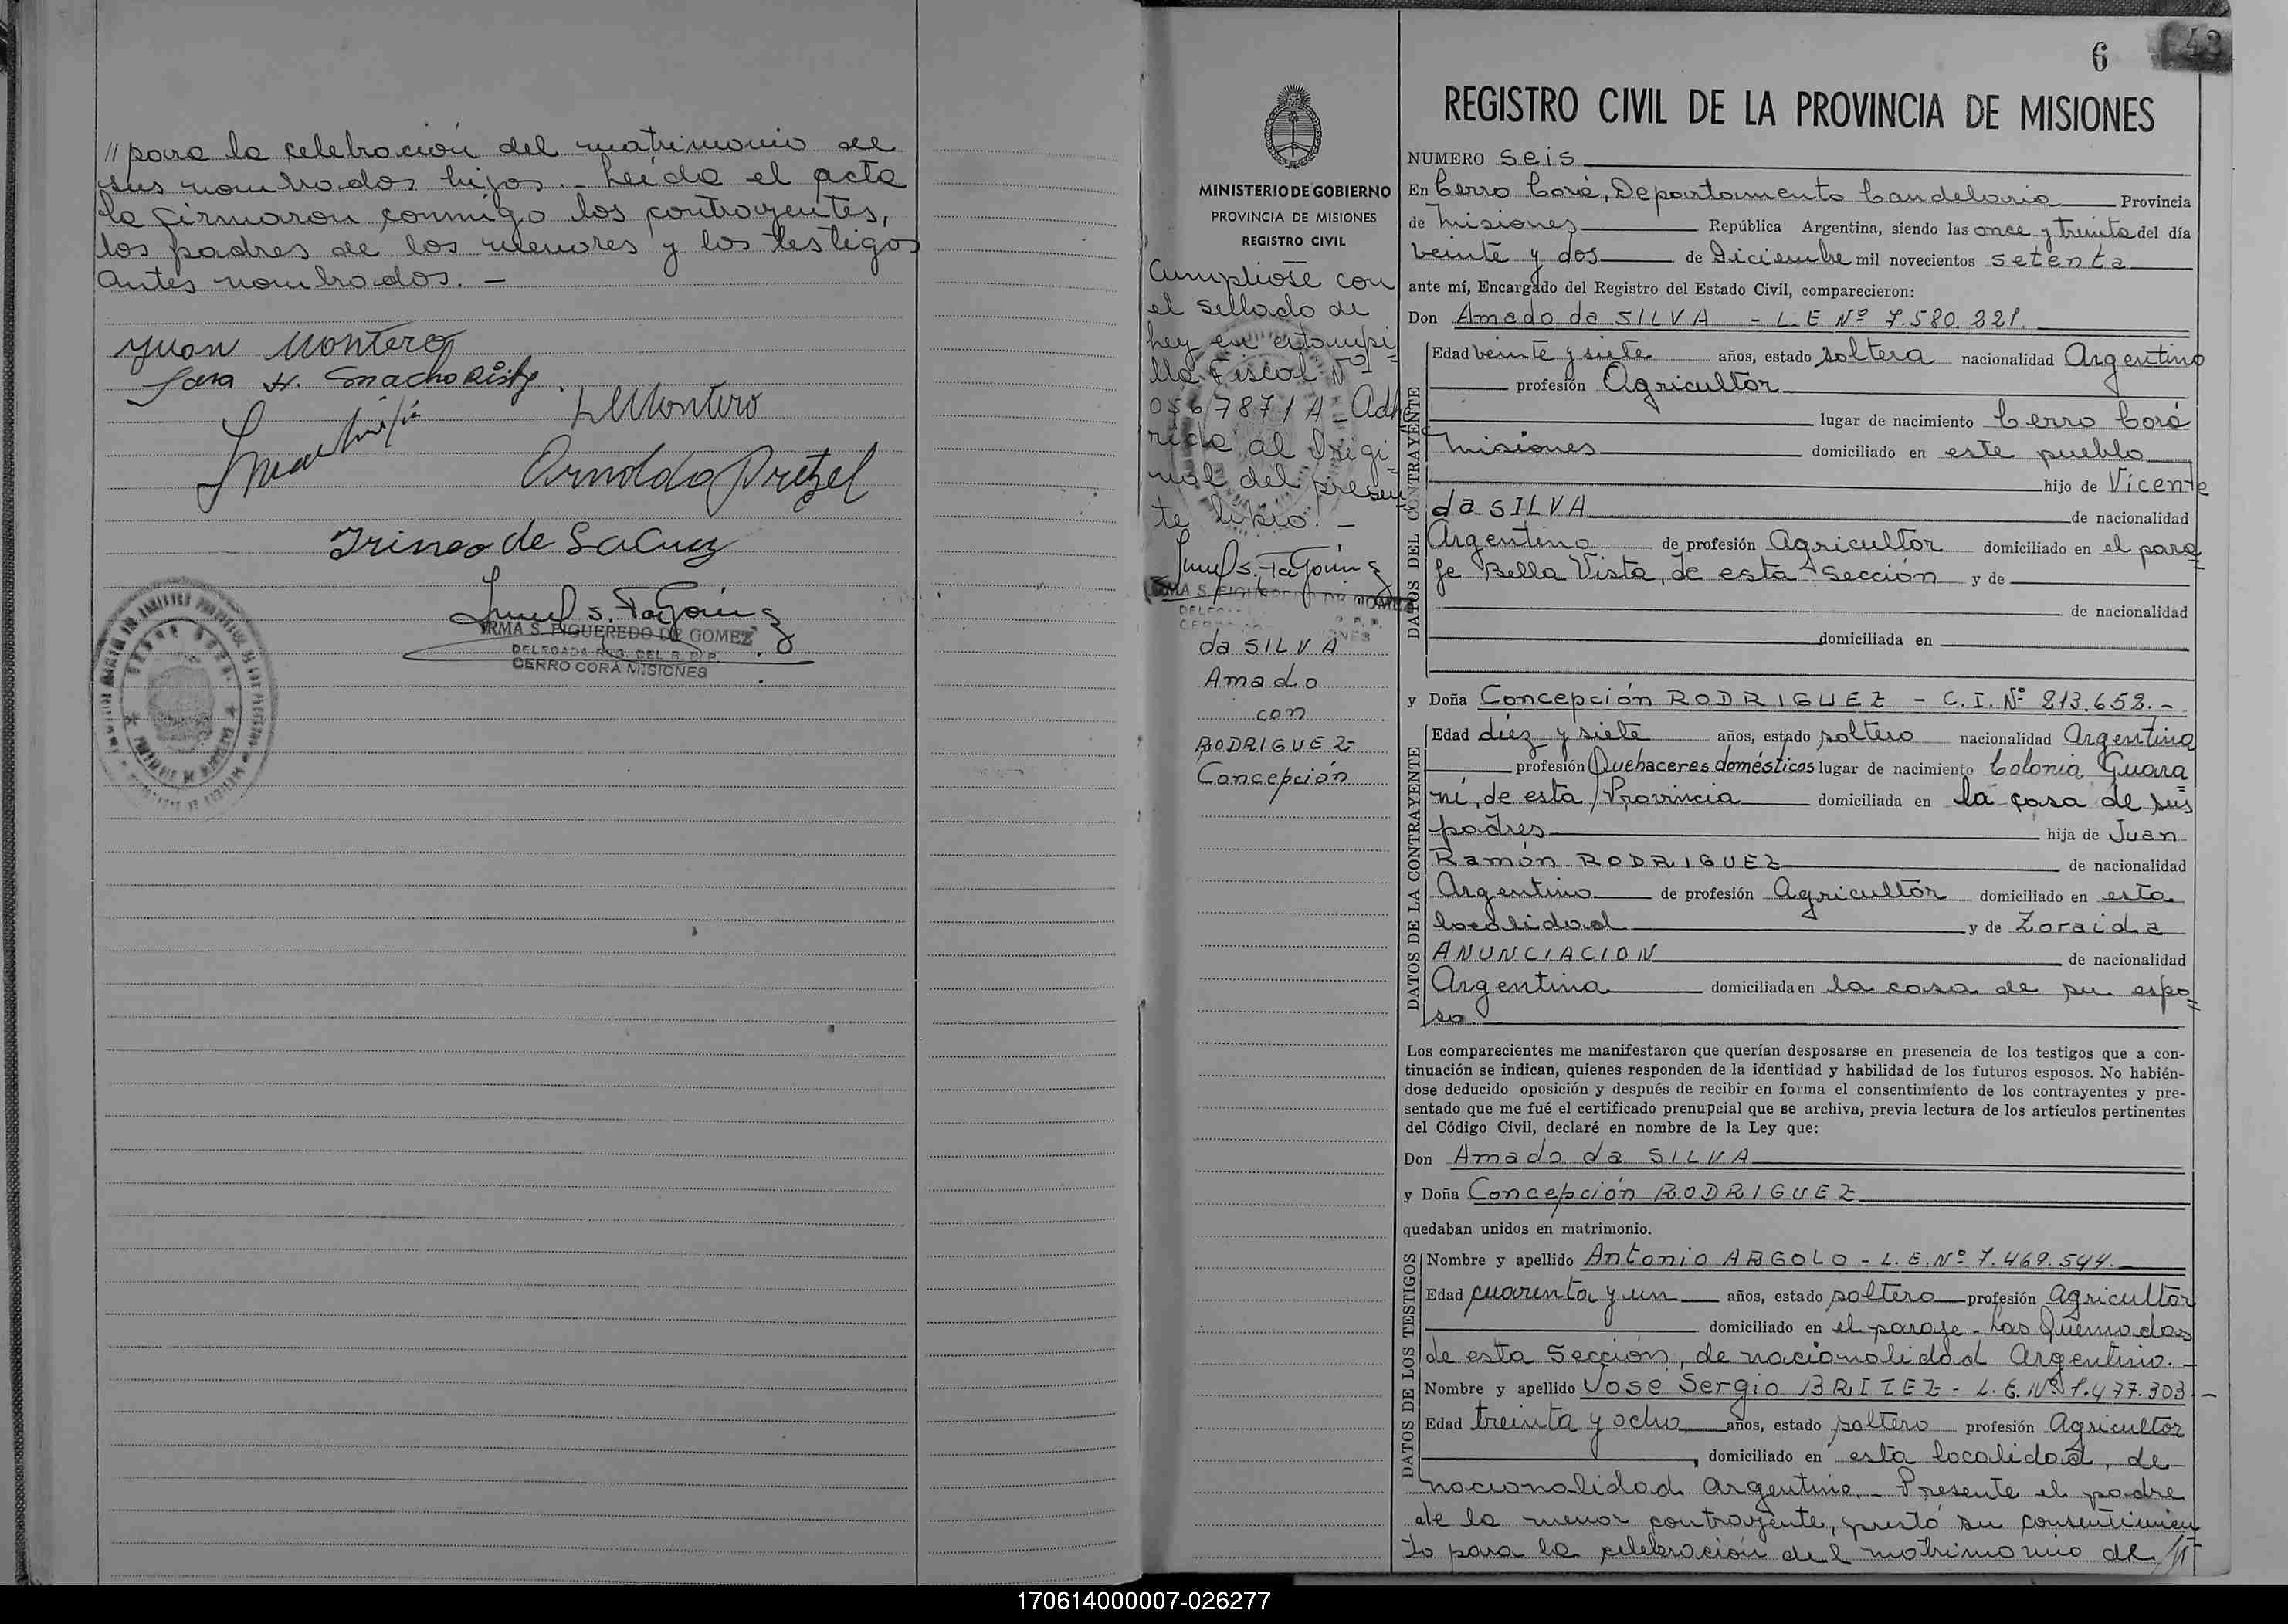 // para la celebración del matrimonio de
sus nombrados hijos.- Leída el acta
la firmaron conmigo los contrayentes,
los padres de los menores y los testigos
antes nombrados. -
Juan Montero
Sara H.
Arnoldo Pretzel
Irineo de
IRMA S. FIGUEREDO DE GOMEZ
DELEGADA REG. DEL R. P. P.
CERRO CORA MISIONES
6
REGISTRO CIVIL DE LA PROVINCIA DE MISIONES
MINISTERIO DE GOBIERNO
PROVINCIA DE MISIONES
REGISTRO CIVIL
Cumplióse con
el sellado de
ley en estampi
lla Fiscal Nº
0567871 A - Adhe
rida al origi
nal del presen
te libro. -
da SILVA
Amado
con
RODRIGUEZ
Concepción
NUMERO seis
En Cerro Corá, Departamento Candelaria Provincia
de Misiones República Argentina, siendo las once y treinta del día
veinte y dos de Diciembre mil novecientos setenta
ante mí, Encargado del Registro del Estado Civil, comparecieron:
Don Amado da SILVA - L.E Nº 7.580.221.
DATOS DEL CONTRAYENTE
Edad veinte y siete años, estado soltera nacionalidad Argentino
profesión Agricultor
lugar de nacimiento Cerro Corá
Misiones domiciliado en este pueblo
hijo de Vicente
da SILVA de nacionalidad
Argentino de profesión Agricultor domiciliado en el para
je Bella Vista, de esta sección y de
de nacionalidad
domiciliada en
y Doña Concepción RODRIGUEZ - C.I. Nº 213.652.-
DATOS DE LA CONTRAYENTE
Edad diéz y siete años, estado soltero nacionalidad Argentina
profesión Quehaceres domésticos lugar de nacimiento Colonia Guara
ní, de esta Provincia domiciliada en la casa de sus
padres hija de Juan
Ramón RODRIGUEZ de nacionalidad
Argentino de profesión Agricultor domiciliado en esta
localidad y de Zoraida
ANUNCIACION de nacionalidad
Argentina domiciliada en la casa de su espo=
so.
Los comparecientes me manifestaron que querían desposarse en presencia de los testigos que a con-
tinuación se indican, quienes responden de la identidad y habilidad de los futuros esposos. No habién-
dose deducido oposición y después de recibir en forma el consentimiento de los contrayentes y pre-
sentado que me fué el certificado prenupcial que se archiva, previa lectura de los artículos pertinentes
del Código Civil, declaré en nombre de la Ley que:
Don Amado da SILVA
y Doña Concepción RODRIGUEZ
quedaban unidos en matrimonio.
DATOS DE LOS TESTIGOS
Nombre y apellido Antonio ARGOLO - L.E.Nº 7.469.544.
Edad cuarenta y un años, estado soltero profesión Agricultor
domiciliado en el paraje - Las Quemadas
de esta Sección, de nacionalidad Argentino. -
Nombre y apellido José Sergio BRITEZ - L.E.Nº 7.477.303 -
Edad treinta y ocho años, estado soltero profesión Agricultor
domiciliado en esta localidad, de
nacionalidad Argentino. - Presente el padre
de la menor contrayente, prestó su consentimien
to para la celebración del matrimonio de //
170614000007-026277